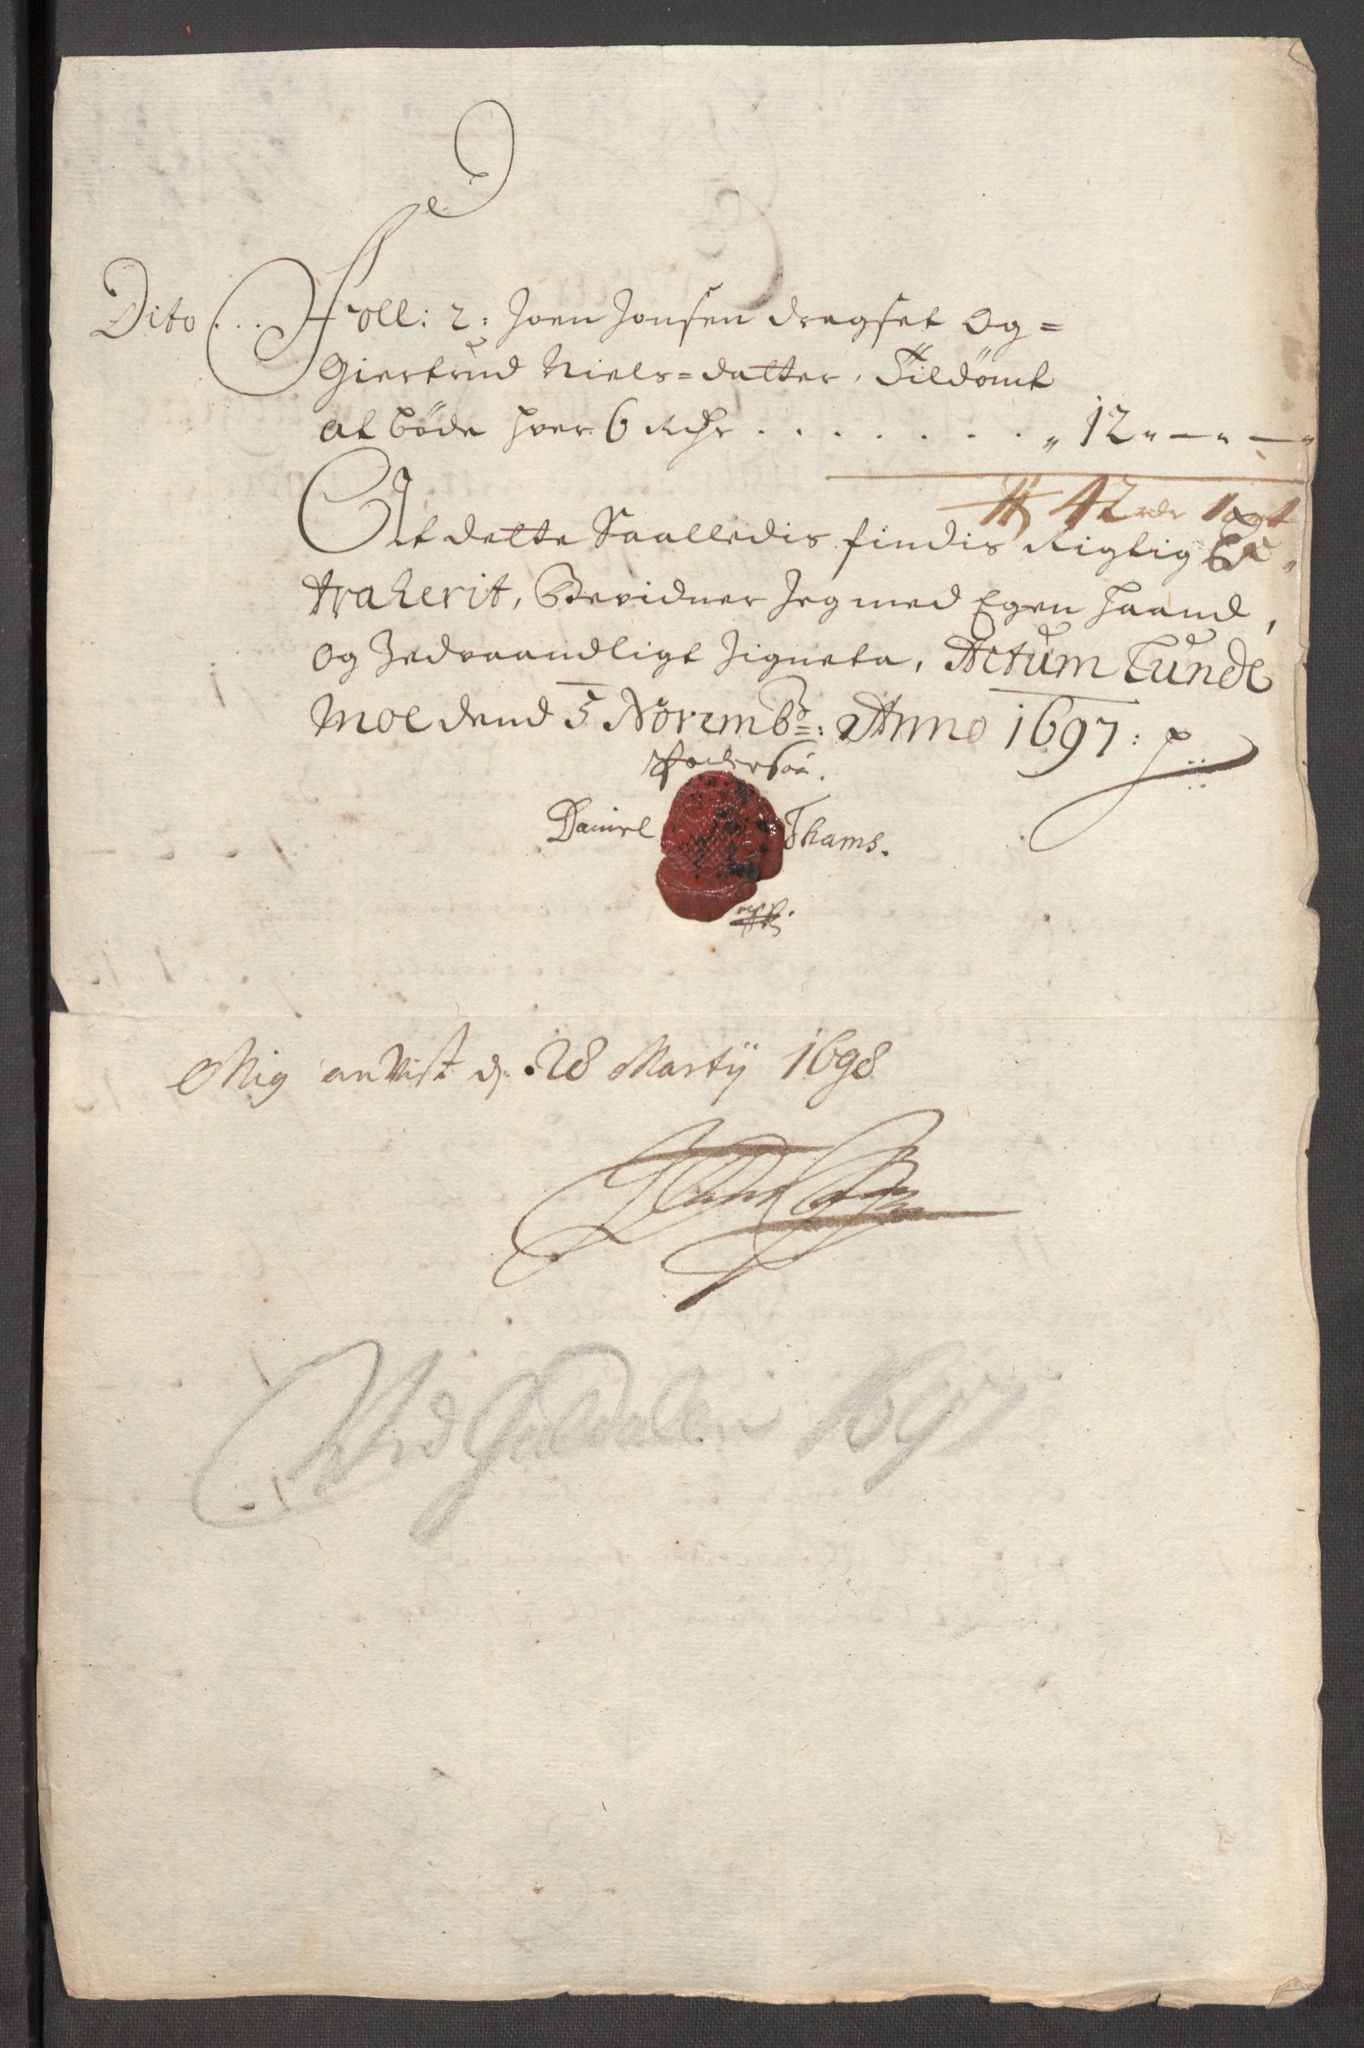 Dito... Foll: 2: Joen Jonsen Dragset og=
Giertrud Niels=datter, Tildömt
at böde hver 6 Rdr . . . . . . . „ 12 „ — „ — „
42 rdr
At dette Saalledis findis Rigtig Ex„
traherit, Bevidner Jeg med Egen haand,
og Sedvaandligt Signete, Actum Lunde
Moe dend 5 Novemb: Anno 1697:
Daniel Thams.
Mig anvist d. 28 Martij 1698
Guldalen 1697